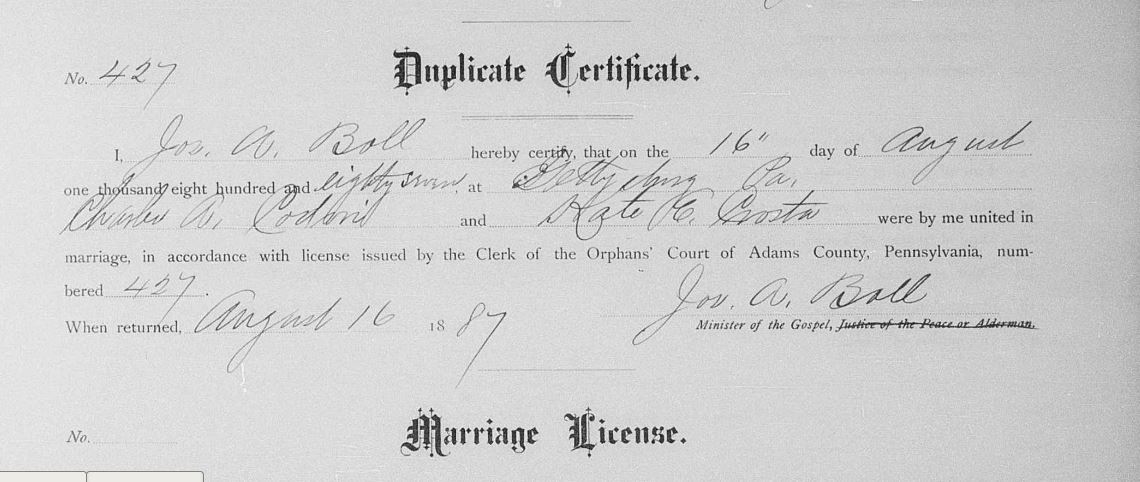 No. 427 Duplicate Certificate.
I, Jos. A. Boll hereby certify, that on the 16" day of August
one thousand eight hundred and eighty seven, at Gettysburg Pa,
Charles A. Codori and Kate E. Crosta were by me united in
marriage, in accordance with license issued by the Clerk of the Orphans' Court of Adams County, Pennsylvania, num-
bered 427.
Jos. A. Boll
When returned, August 16 1887
Minister of the Gospel, Justice of the Peace or Alderman.
No. Marriage License.